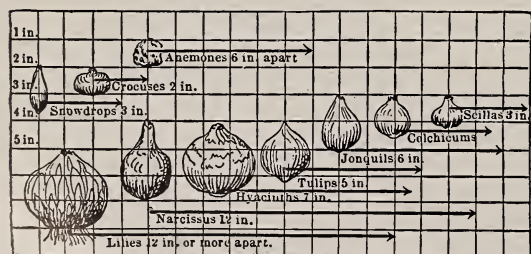 1 in.
Anemones 6 in. apart
2 in.
Crocuses 2 in.
3 in.
Snowdrops 3 in.
Scillas 3 in.
4 in.
Colchicums
5 in.
Jonquils 6 in.
Tulips 5 in.
Hyacinths 7 in.
Narcissus 12 in.
Lilies 12 in. or more apart.